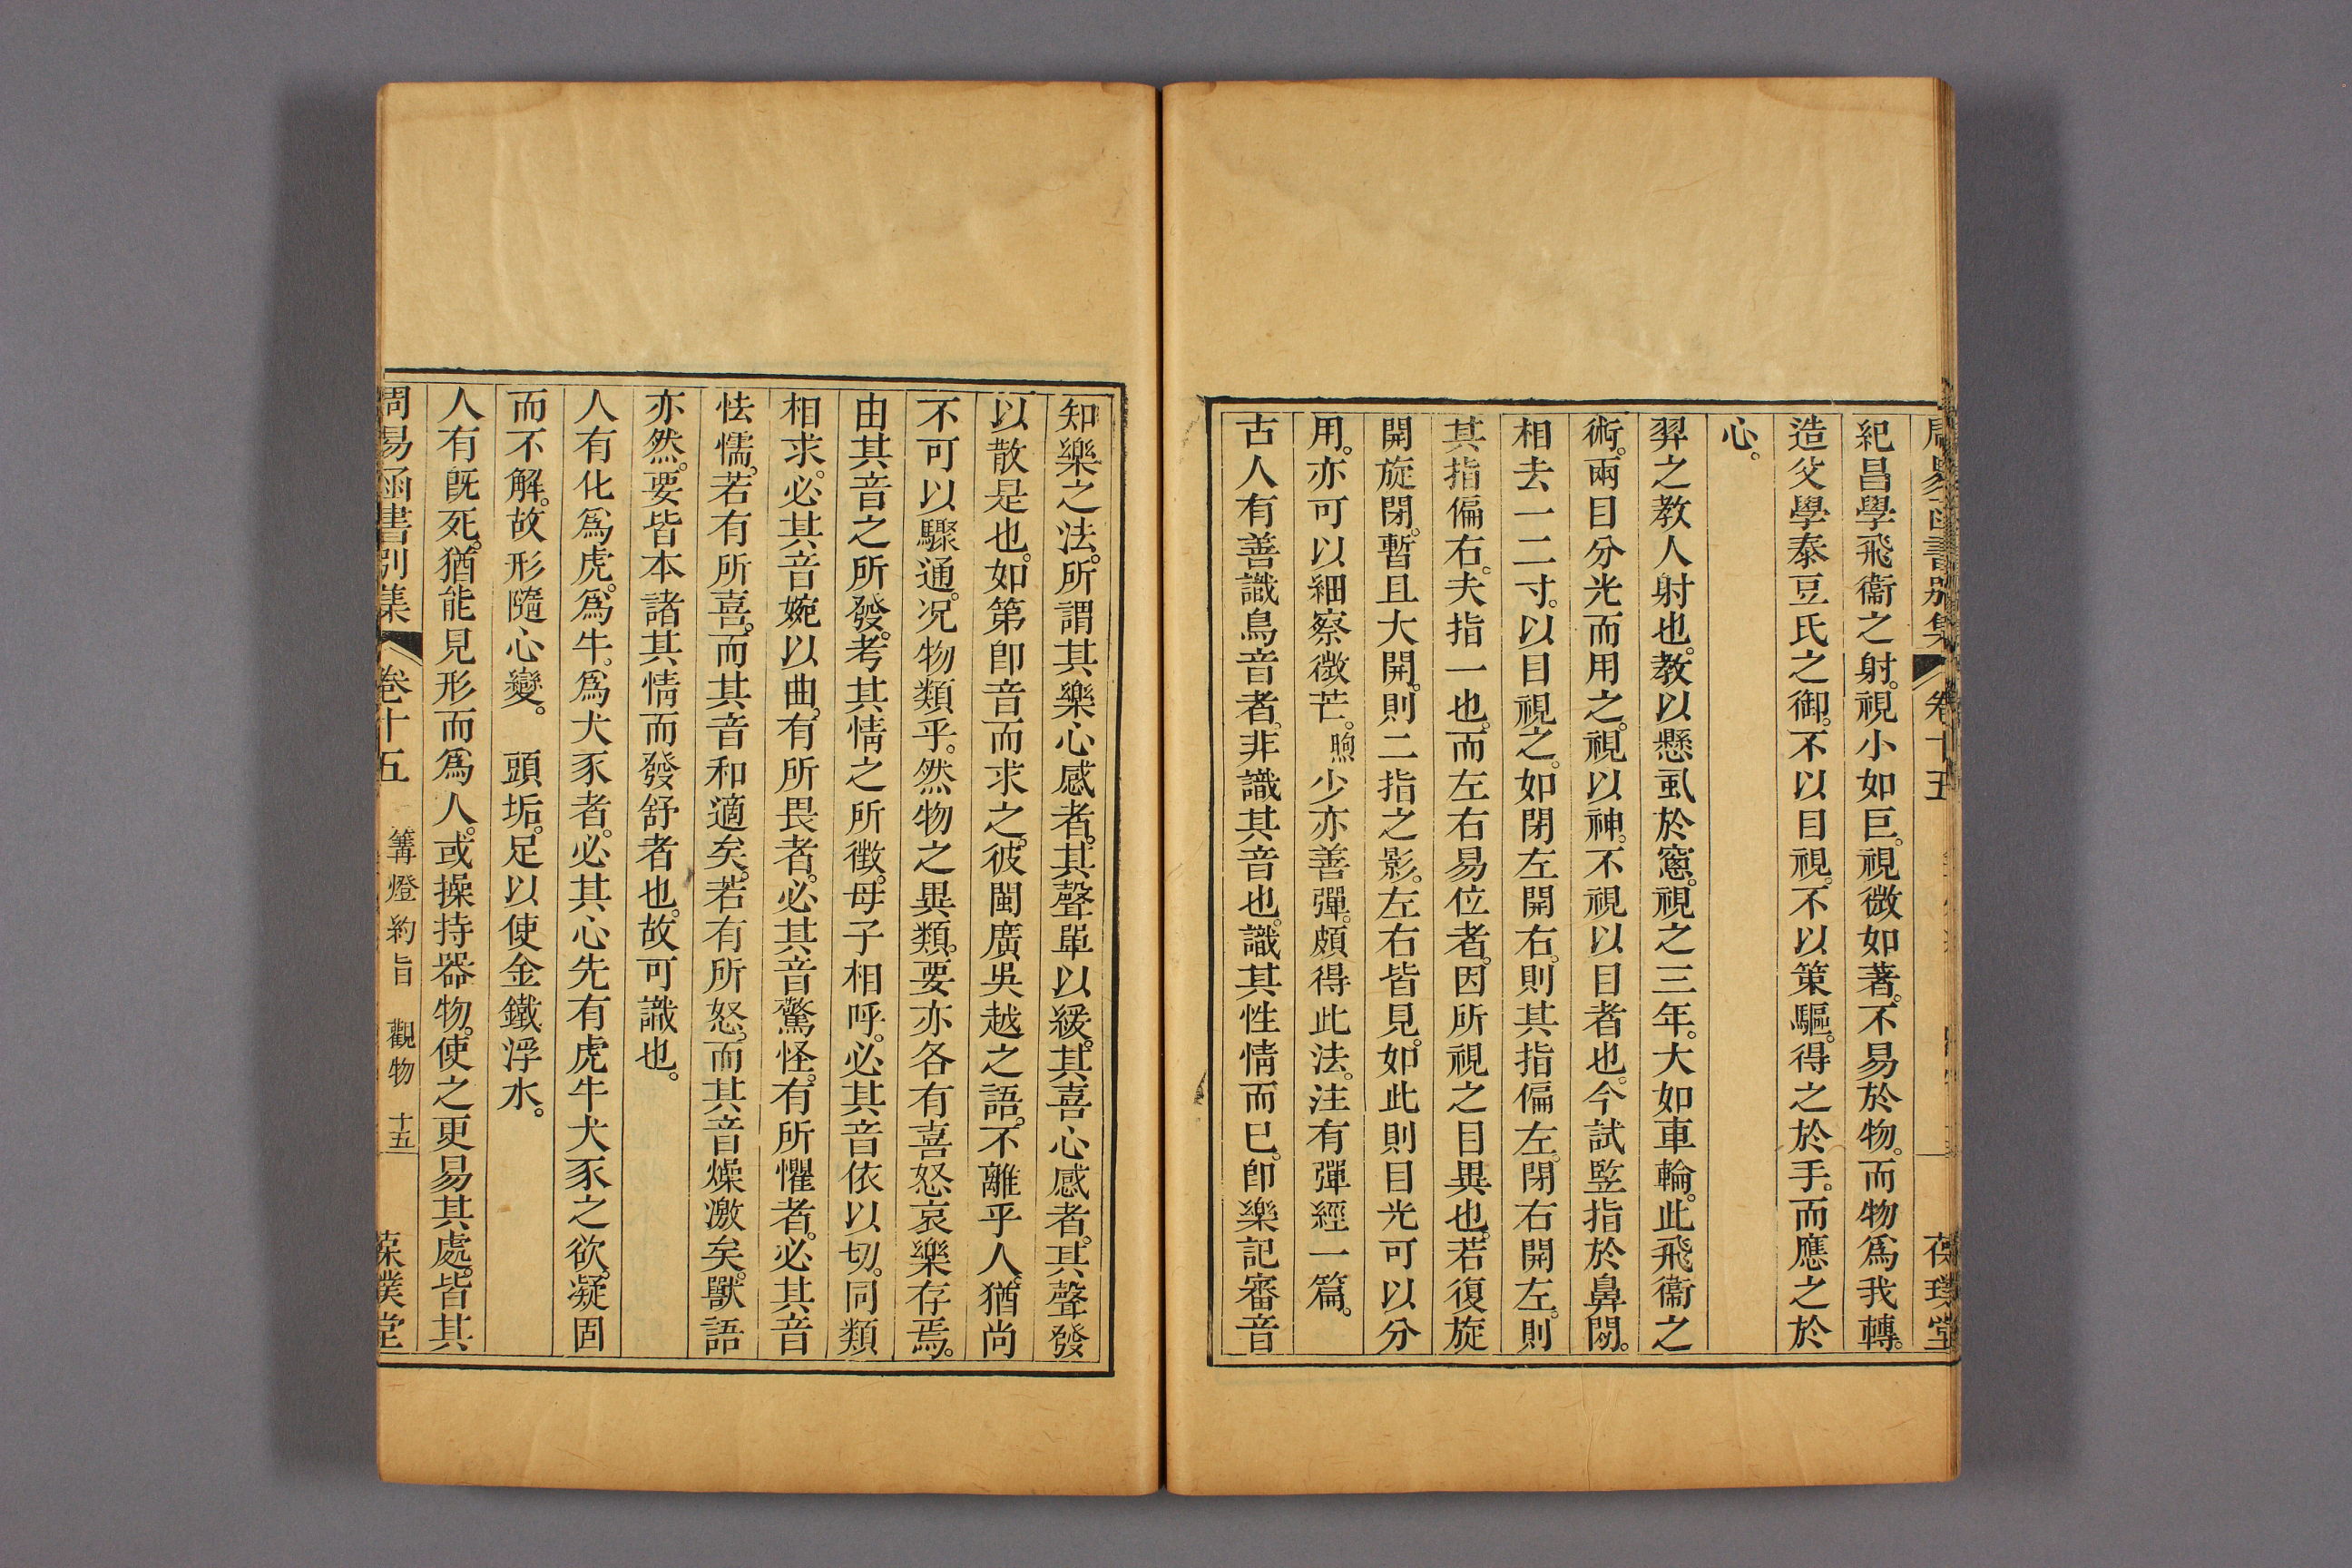 周易函書別集 卷十五 葆璞堂
紀昌學飛衞之射。視小如巨。視微如著。不易於物。而物爲我轉。
造父學泰豆氏之御。不以目視。不以策驅。得之於手。而應之於
心。
羿之教人射也。教以懸虱於窻。視之三年。大如車輪。此飛衞之
術。兩目分光而用之。視以神。不視以目者也。今試竪指於鼻閉。
相去一二寸。以目視之。如閉左開右。則其指偏左。閉右開左。則
其指偏右。夫指一也。而左右易位者。因所視之目異也。若復旋
開旋閉。暫且大開。則二指之影。左右皆見。如此則目光可以分
用。亦可以細察微芒。煦少亦善彈。頗得此法。注有彈經一篇。
古人有善識鳥音者。非識其音也。識其性情而已。卽樂記審音
知樂之法。所謂其樂心感者。其聲單以緩。其喜心感者。其聲發
以散是也。如第卽音而求之。彼閩廣吳越之語。不離乎人。猶尚
不可以驟通。况物類乎。然物之異類。要亦各有喜怒哀樂存焉。
由其音之所發。考其情之所徵。母子相呼。必其音依以切。同類
相求。必其音婉以曲。有所畏者。必其音驚怪。有所懼者。必其音
怯懦。若有所喜。而其音和適矣。若有所怒。而其音燥激矣。獸語
亦然。要皆本諸其情而發舒者也。故可識也。
人有化爲虎。爲牛。爲犬豕者。必其心先有虎牛犬豕之欲。凝固
而不解。故形隨心變。 頭垢。足以使金鐵浮水。
人有旣死。猶能見形而爲人。或操持器物。使之更易其處。皆其
周易函書別集 卷十五 篝燈約旨 觀物 十五 葆璞堂